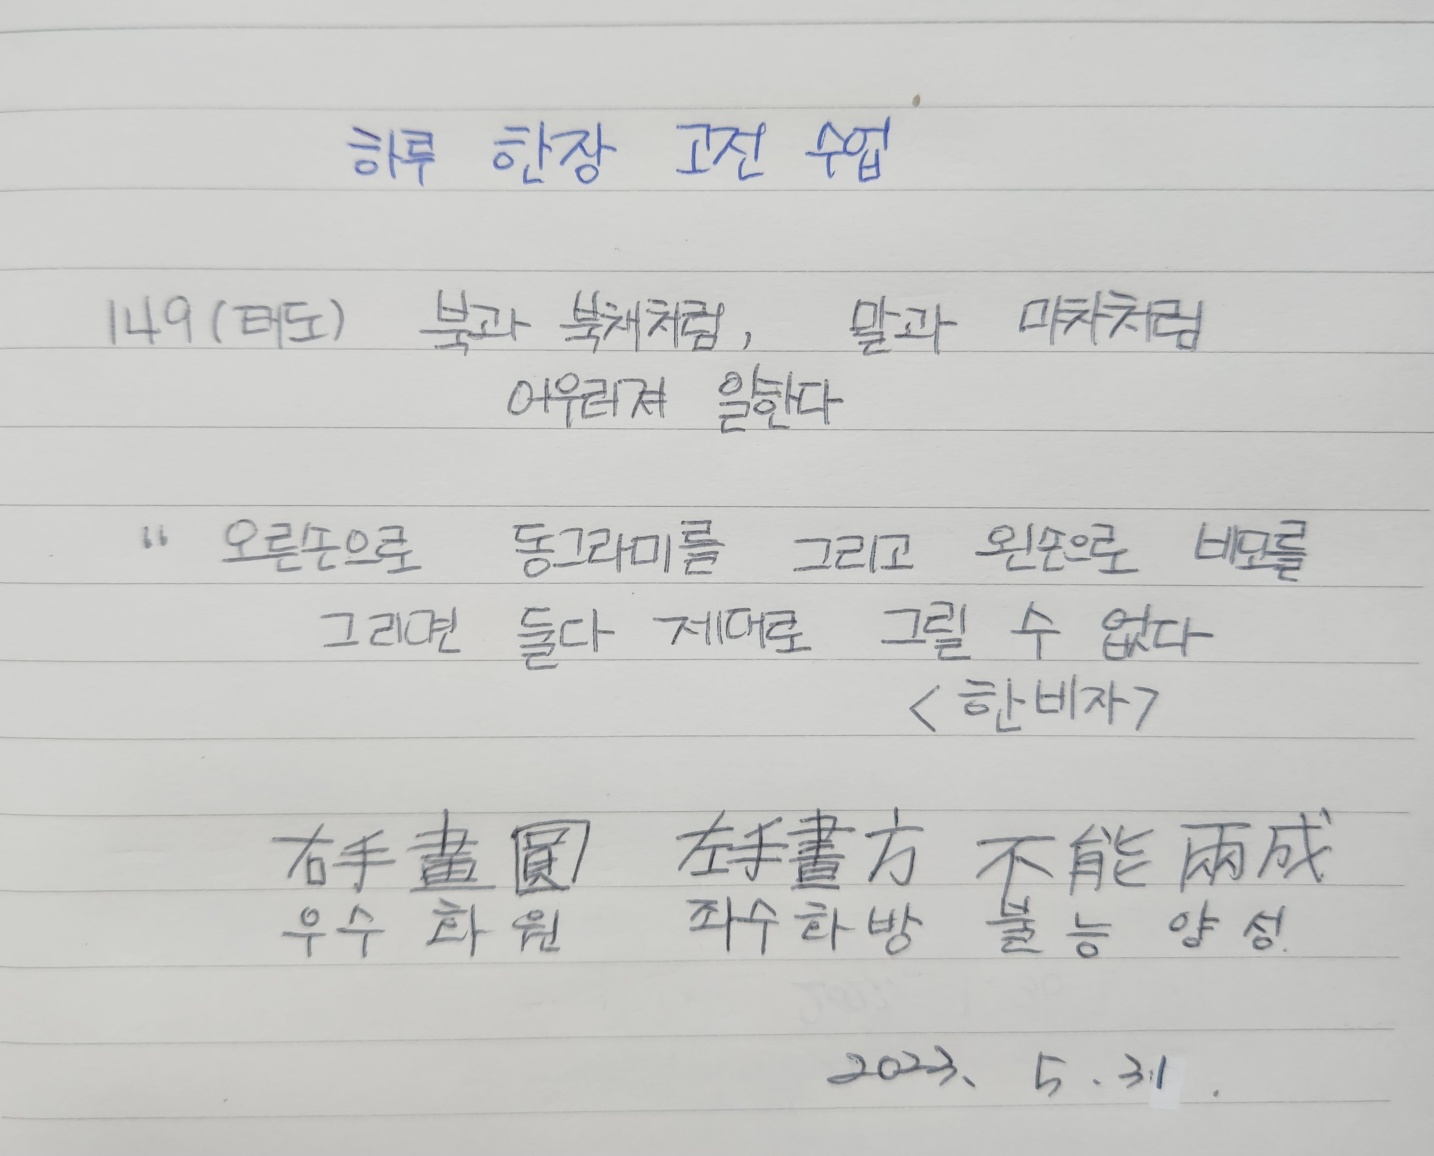 하루 한장 고전 수업
149(태도) 북과 북채처럼, 말과 마차처럼
어우러져 일한다
“ 오른손으로 동그라미를 그리고 왼손으로 네모를
그리면 둘다 제대로 그릴 수 없다
<한비자>
右手畫圓 左手畫方 不能兩成
우수화원 좌수화방 불능양성.
2023. 5. 31.